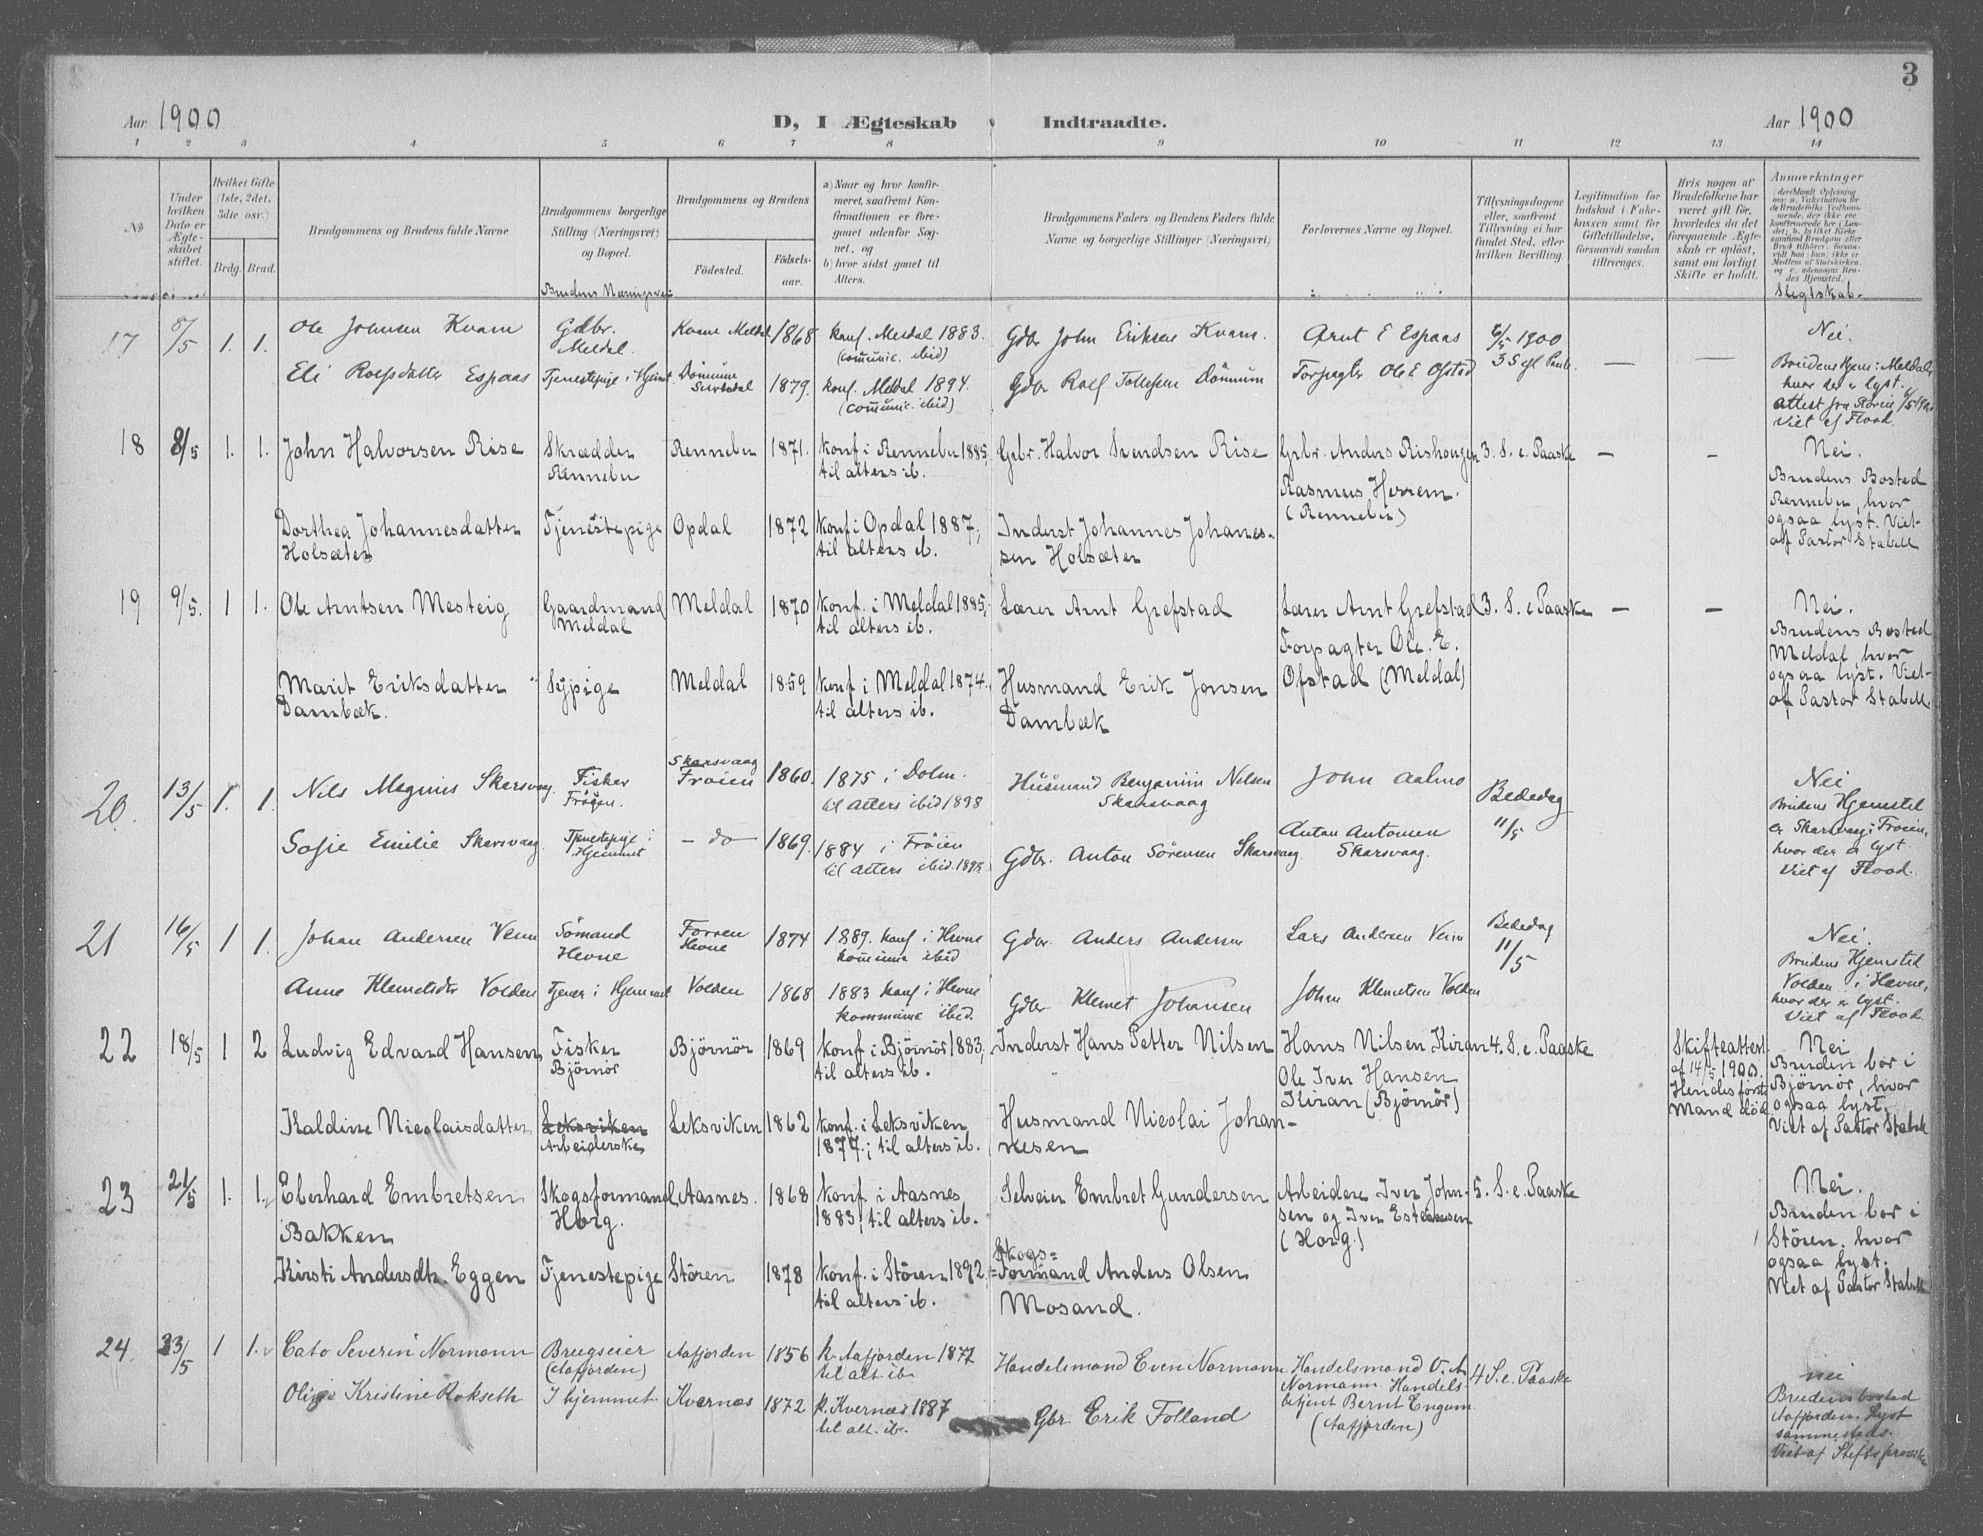 3
Aar 1900
D, I Ægteskab Indtraadte.
Aar 1900
1 2 3 4 5 6 7 8 9 10 11 12 13 14
No
Under hvilken Dato er Ægteskabet stiftet.
Hvilket Gifte (1ste, 2det, 3die osv.)
Brdg. Brud.
Brudgommens og Brudens fulde Navne
Brudgommens borgerlige Stilling (Næringsvei) og Bopæl.
Brudens Næringsvei
Brudgommens og Brudens
Fødested.
Fødselsaar.
a) Naar og hvor konfirmeret, saafremt Konfirmationen er foregaaet udenfor Sognet, og
b) hvor sidst gaaet til Alters.
Brudgommens Faders og Brudens Faders fulde Navne og borgerlige Stillinger (Næringsvei)
Forlovernes Navne og Bopæl.
Tillysningsdagene eller, saafremt Tillysning ei har fundet Sted, efter hvilken Bevilling.
Legitimation for Indskud i Enkekassen samt for Giftetilladelse, forsaavidt saadan tiltrænges.
Hvis nogen af Brudefolkene har været gift før, hvorledes da det foregaaende Ægteskab er opløst, samt om lovligt Skifte er holdt.
Anmærkninger
Slegtskab.
17 8/5 1. 1.
Ole Johnsen Kvam
Gdbr. Meldal.
Kvam Meldal
1868
konf. Meldal 1883.
(comunic. ibid)
Gdbr John Eriksen Kvam.
Arnt E Espaas
6/5 1900
3 S efl Paaske.
Nei.
Eli Rolfsdatter Espaas
Tjenestepige i Hjemmet
Dönnum Surendal
1879.
konf. Meldal 1894.
(comunic. ibid)
Gdbr Rolf Tollefsen Dönnum
Forpagter Ole E Ofstad
Brudens Hjem: Meldal,
hvor der er lyst.
Viet af Flood.
18 8/5 1. 1.
John Halvorsen Rise
Skrædder
Rennebu
Rennebu
1871.
konf. i Rennebu 1885,
til alters ib.
Grbr. Halvor Svendsen Rise
Grbr. Anders Rishougen
Rasmus Herrem.
(Rennebu)
3. S. e. Paaske
Nei.
Brudens Bosted
Rennebu, hvor
ogsaa lyst. Viet
af Pastor Stabell
Dorthea Johannesdatter
Holsæter
Tjenestepige
Opdal
1872
konf. i Opdal 1887;
til alters ib.
Inderst Johannes Johanes-
sen Holsæter
19 9/5. 1 1.
Ole Arntsen Mesteig
Gaardmand
Meldal
Meldal
1870
konf. i Meldal 1885;
til alters ib.
Lærer Arnt Grefstad
Lærer Arnt Grefstad
Forpagter Ole. E.
Ofstad (Meldal)
3. S. e Paaske
Nei.
Brudens Bosted
Meldal, hvor
ogsaa lyst. Viet
af Pastor Stabell.
Marit Eriksdatter
Dambæk.
Sypige
Meldal
1859
konf. i Meldal 1874.
til alters ib.
Husmand Erik Jonsen
Dambæk
20. 13/5 1. 1.
Nils Magnus Skarsvaag.
Fisker
Fröyen.
Skarsvaag
Froien
1860.
1875 i Dolm.
til Alters ibid 1898
Husmand Benjamin Nilsen
Skarsvaag
John Aalmo
Bededag
11/5
Nei
Brudens Hjemsted
er Skarsvaag i Froien,
hvor der er lyst
Viet af Flood.
Sofie Emilie Skarsvaag.
Tjenestepige i
Hjemmet
— do —
1869.
1884 i Fröien
til Alters ibid. 1898
Gdbr. Anton Sörensen Skarsvaag.
Anton Antonsen
Skarsvaag.
21 16/5 1 1.
Johan Andersen Venn
Sömand
Hevne
Forren
Hevne
1874
1889. konf i Hevne
komune ibid
Gdbr. Anders Andersen
Lars Andersen Venn
Bededag
11/5
Nei.
Brudens Hjemsted
Volden i Hevne,
hvor der er lyst.
Viet af Flood.
Anne Klemetsdtr Volden
Tjener i Hjemmet
Volden
1868
1883 konf i Hevne
kommune ibid.
Gdbr Klemet Johansen
Johan Klemetsen Volden
22 18/5 1 2
Ludvig Edvard Hansen,
Fisker
Björnör
Björnör
1869
konf. i Björnör 1883,
til alters ib.
Inderst Hans Petter Nilsen
Hans Nilsen Kiran
Ole Iver Hansen
Kiran (Björnör)
4. S. e. Paaske
Skifteattest
af 14/5 1900.
Hendes förste
Mand död
Nei
Bruden bor i
Björnör, hvor
ogsaa lyst.
Viet af Pastor Stabell
Kaldine Nicolaisdatter
Leksviken
Arbeiderske
Leksviken
1862
konf. i Leksviken
1877; til alters ib.
Husmand Nicolai Johan-
nesen
23 21/5 1. 1.
Eberhard Embretsen
Bakken
Skogsformand
Horg.
Aasnes.
1868
konf. i Aasnes
1883; til alters ib.
Selveier Embret Gundersen
Arbeidere Iver John-
sen og Iver Estensen
(Horg.)
5. S. e. Paaske
Nei.
Bruden bor i
Stören, hvor
ogsaa lyst.
Viet af Pastor Stabell
Kirsti Andersdtr. Eggen
Tjenestepige
Stören
1878
konf. i Stören 1892,
til alters ib.
Skogs=
=Formand Anders Olsen
Mosand.
24. 23/5 1 1.
Cato Severin Normann
Brugseier
(Aafjorden)
Aafjorden
1856
k. Aafjorden 1877
til alt. ib.
Handelsmand Even Normann
Handelsmand O. A.
Normann. Handels-
betjent Bernt Engum
(Aafjorden)
4 S. e. Paaske
nei
Brudens bosted
Aafjorden. Lyst
sammesteds.
Viet af Stiftsprovsten
Oline Kristine Rokseth
I hjemmet.
Kvernes
1872
k. Kvernes 1887
til alt. ib.
Gbr. Erik Folland